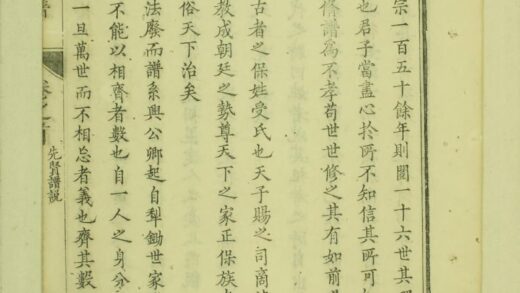 宗一百五十餘年則閱一十六世其
也君子當盡心於所不知信其所可
修譜為不孝苟世世修之其有如前
古者之保姓受氏也天子賜之司商
教成朝廷之勢尊天下之家正保族
俗天下治矣
法廢而譜系與公卿起自犁鋤世家
不能以相齊者數也自一人之身分
一旦萬世而不相忘者義也齊其數
先賢譜說
卷之首